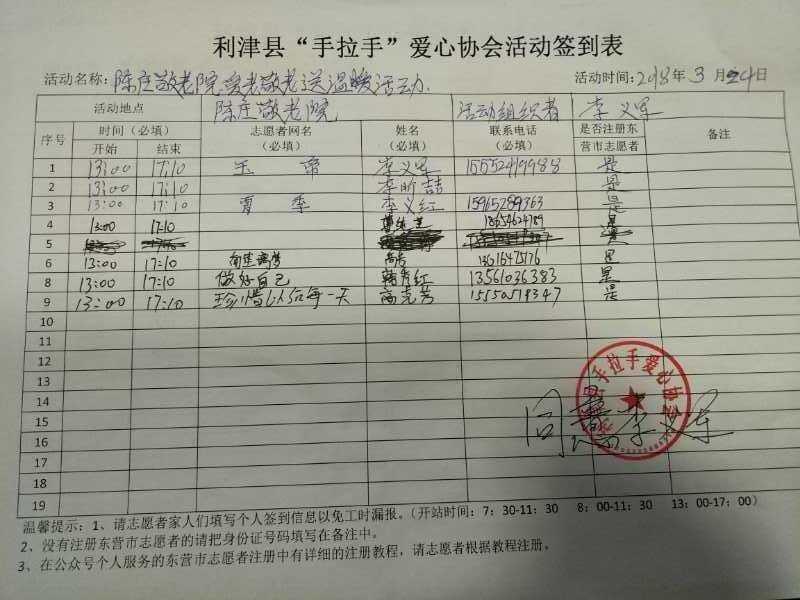 利津县“手拉手”爱心协会活动签到表
活动名称：陈庄敬老院爱老敬老送温暖活动. 活动时间：2018年3月24日
活动地点 陈庄敬老院 活动组织者 李义军
序号 时间（必填） 志愿者网名（必填） 姓名（必填） 联系电话（必填） 是否注册东营市志愿者 备注
开始 结束
1 13:00 17:10 玉帝 李义军 15552419988 是
2 13:00 17:10 李昕喆 是
3 13:00 17:10 夏季 李义红 15965289363 是
4 13:00 17:10 18654624789 是
5
6 13:00 17:10 是
8 13:00 17:10 做好自己 韩秀红 13561036383 是
9 13:00 17:10 珍惜以后每一天 高克芳 15550519347 是
10
11
12
13
14
15
16
17
18
19
手拉手爱心协会
同意 李义军
温馨提示：1、请志愿者家人们填写个人签到信息以免工时漏报。（开站时间：7：30-11：30 8：00-11：30 13：00-17：00）
2、没有注册东营市志愿者的请把身份证号码填写在备注中。
3、在公众号个人服务的东营市志愿者注册中有详细的注册教程，请志愿者根据教程注册。